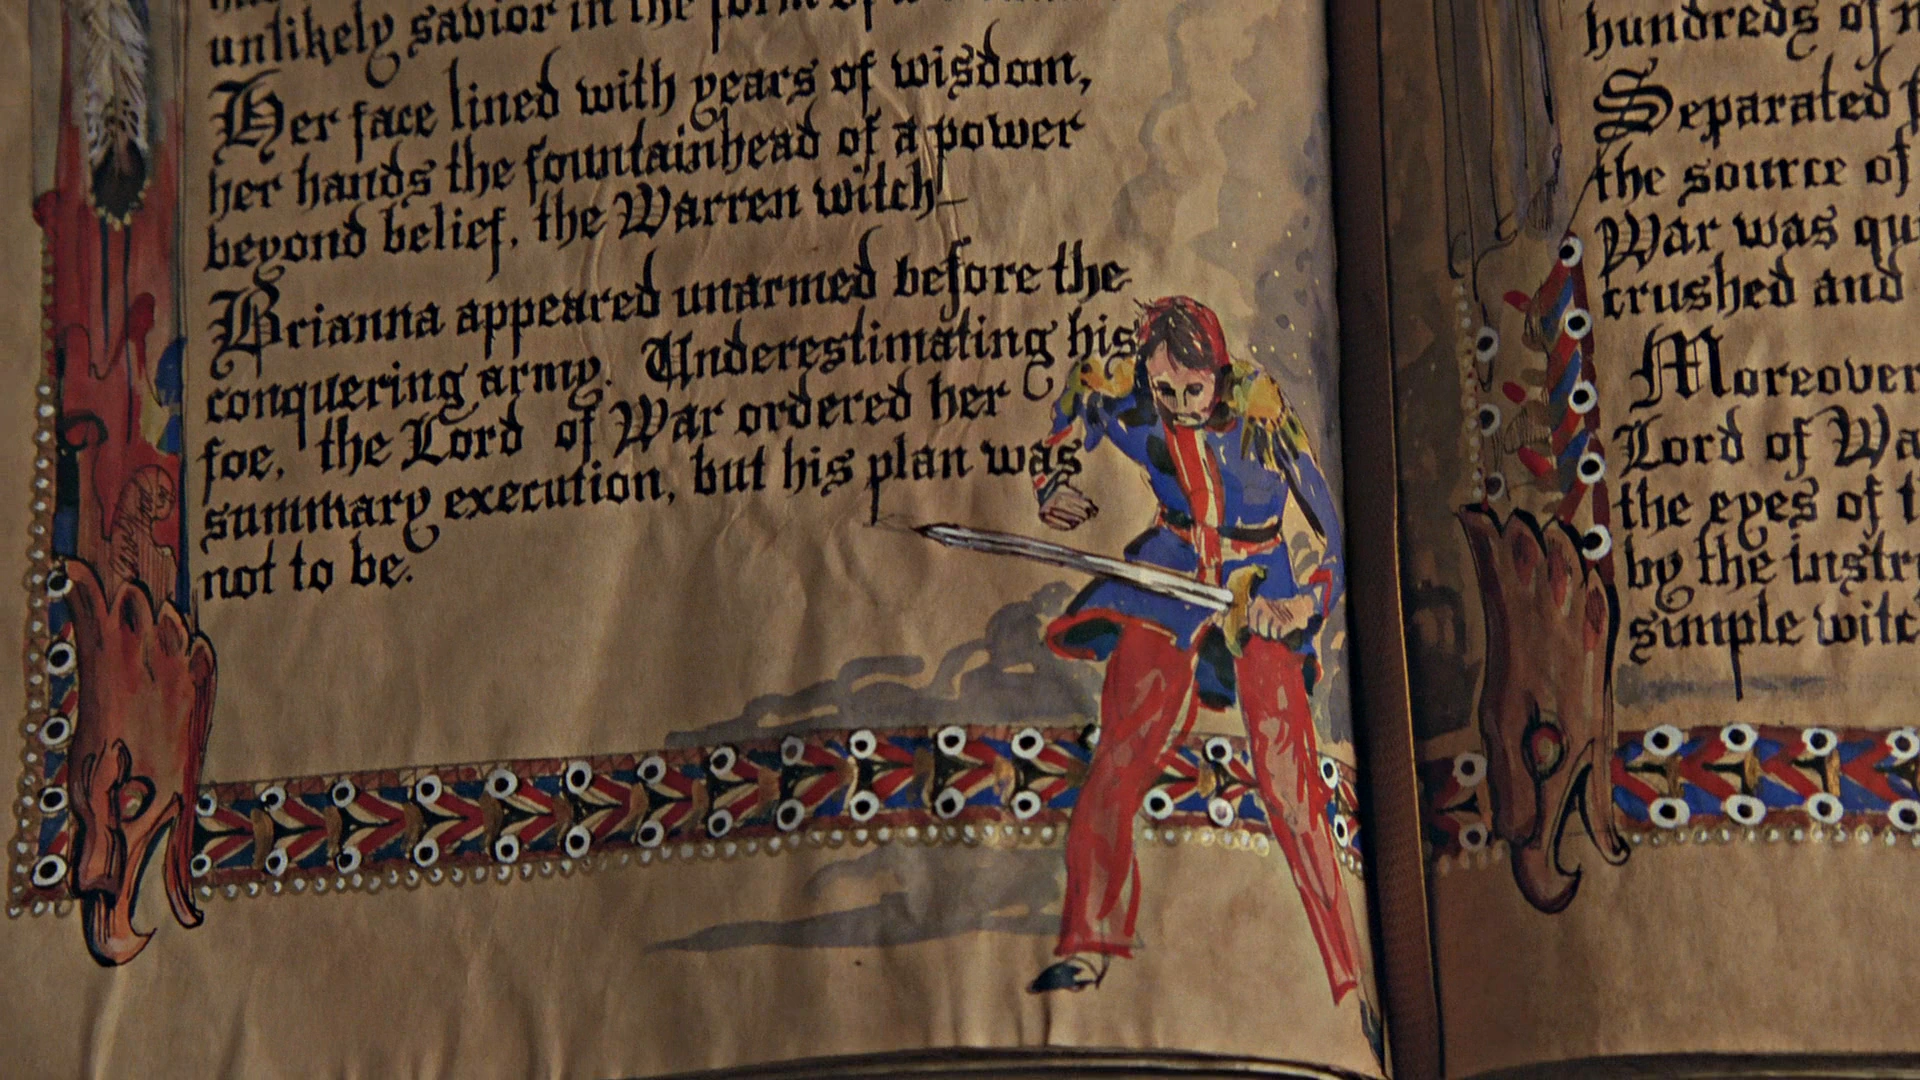 unlikely savior in the form of
Her face lined with years of wisdom,
her hands the fountainhead of a power
beyond belief, the Warren witch-
Brianna appeared unarmed before the
conquering army. Underestimating his
foe, the Lord of War ordered her
summary execution, but his plan was
not to be.
hundreds of
Separated
the source of
War was
crushed and
Moreover
Lord of
the eyes of
by the
simple